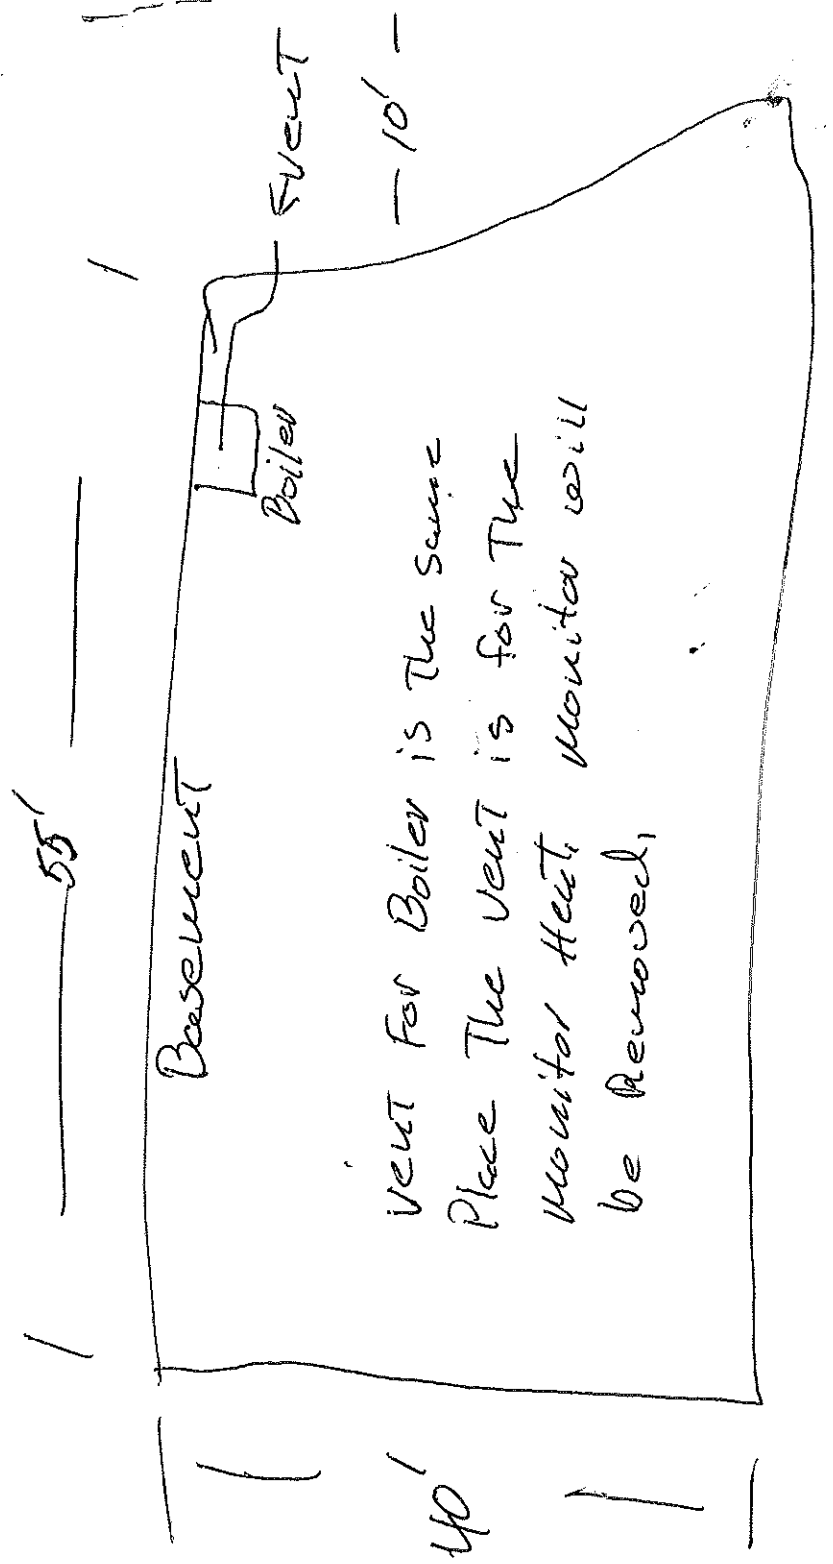 55'
Basement
Boiler
vent
10'
40'
vent For Boiler is The same
Place The vent is for The
monitor Heat, monitor will
be Removed,